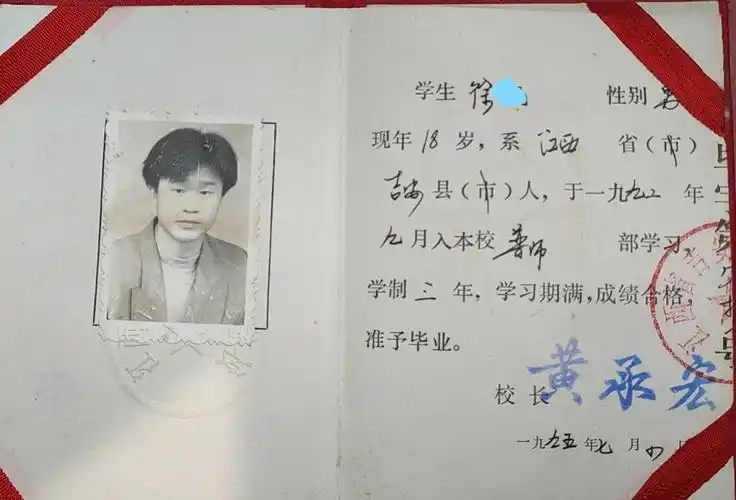 学生 徐 性别 男
现年 18 岁，系 江西 省（市）
吉安 县（市）人，于一九九二 年
九 月入本校 普师 部学习，
学制 三 年，学习期满，成绩合格，
准予毕业。
校长 黄承宏
一九九五年七月 日
江西省吉